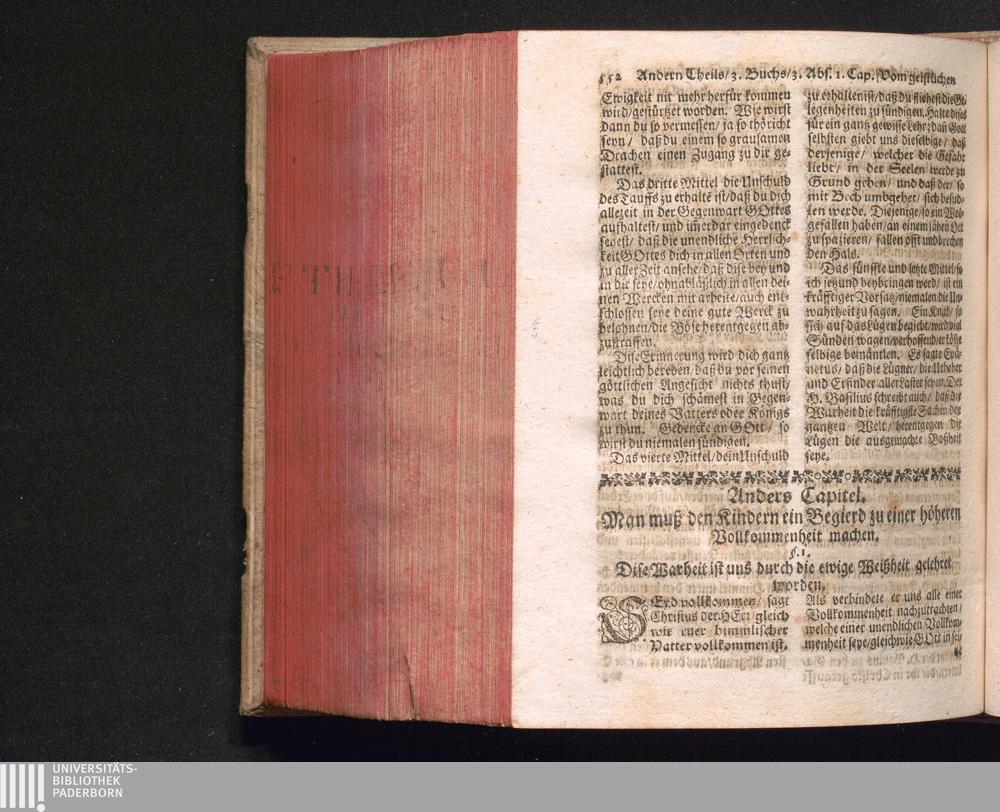 552 Andern Theils/ 3. Buchs/ 3. Abs. 1. Cap. Vom geistlichen
Ewigkeit nit mehr herfür kommen
wird/ gestürtzet worden. Wie wirst
dann du so vermessen/ ja so thöricht
seyn/ daß du einem so grausamen
Drachen einen Zugang zu dir ge-
stattest.
Das dritte Mittel die Unschuld
des Tauffs zu erhalte ist/ daß du dich
allezeit in der Gegenwart GOttes
auffhaltest/ und im̄erdar eingedenck
seyest/ daß die unendliche Herrlich-
keit GOttes dich in allen Orten und
zu aller Zeit ansehe/ daß dise bey und
in dir seye/ ohnabläßlich in allen dei-
nen Wercken mit arbeite/ auch ent-
schlossen seye deine gute Werck zu
belohnen/ die Böse herentgegen ab-
zustraffen.
Dise Erinnerung wird dich gantz
leichtlich bereden/ daß du vor seinem
göttlichen Angesicht nichts thust/
was du dich schämest in Gegen-
wart deines Vatters oder Königs
zu thun. Gedencke an GOtt/ so
wirst du niemalen sündigen.
Das vierte Mittel/ dein Unschuld
zu erhalten ist/ daß du fliehest die Ge-
legenheiten zu sündigen. Halte dises
für ein gantz gewisse Lehr; dan̄ Gott
selbsten giebt uns dieselbige/ daß
derjenige/ welcher die Gefahr
liebt/ in der Seelen werde zu
Grund gehen/ und daß der/ so
mit Bech umbgehet/ sich besud-
len werde. Diejenige/ so ein Wol-
gefallen haben/ an einem jähen Ort
zu spazieren/ fallen offt und brechen
den Hals.
Das fünffte und letzte Mittel/ so
ich jetzund beybringen werd/ ist ein
kräfftiger Vorsatz/ niemalen die Un-
wahrheit zu sagen. Ein Knab/ so
sich auf das Lügen begiebt/ wird viel
Sünden wagen/ verhoffend/ er könte
selbige bemäntlen. Es sagte Epæ-
netus/ daß die Lügner/ die Urheber
und Erfinder aller Laster seyen. Der
H. Basilius schreibt auch/ daß die
Warheit die kräfftigste Sach in der
gantzen Welt/ herentgegen die
Lügen die ausgemachte Boßheit
seye.
Anders Capitel.
Man muß den Kindern ein Begierd zu einer höheren
Vollkommenheit machen.
§. 1.
Dise Warheit ist uns durch die ewige Weißheit gelehret
worden.
SEyd vollkommen/ sagt
Christus der HErr/ gleich
wie euer himmlischer
Vatter vollkommen ist.
Als verbindete er uns alle einer
Vollkommenheit nachzutrachten/
welche einer unendlichen Vollkom-
menheit seye/ gleichwie GOtt in sei-
UNIVERSITÄTS-
BIBLIOTHEK
PADERBORN